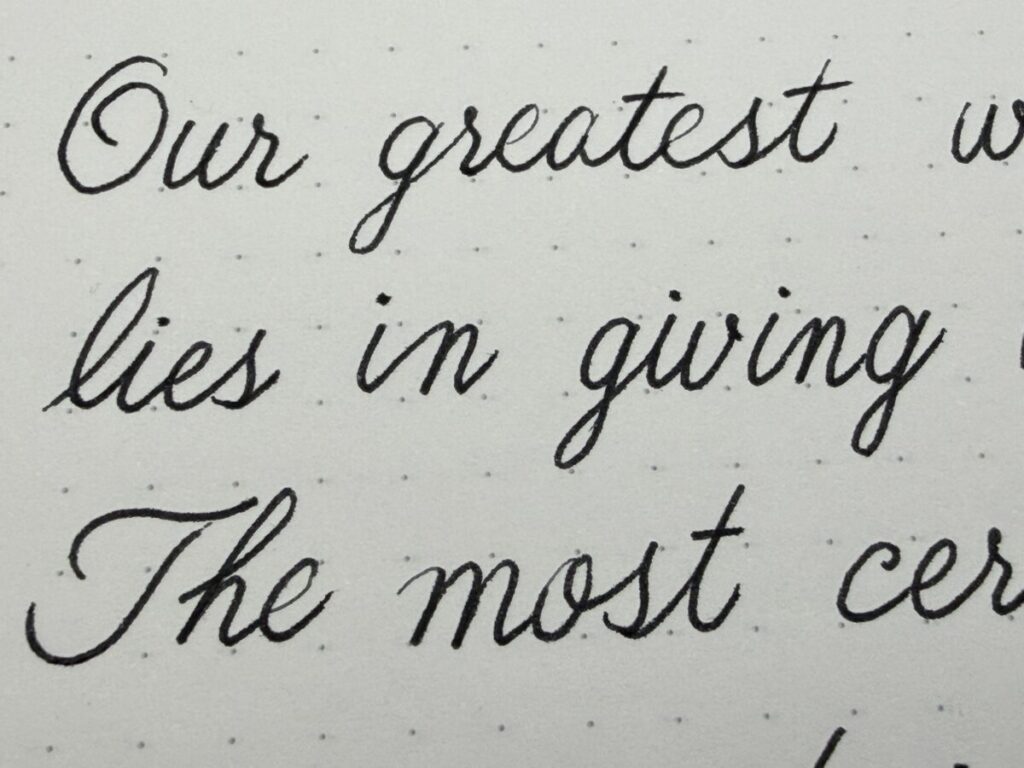 Our greatest w
lies in giving
The most cer